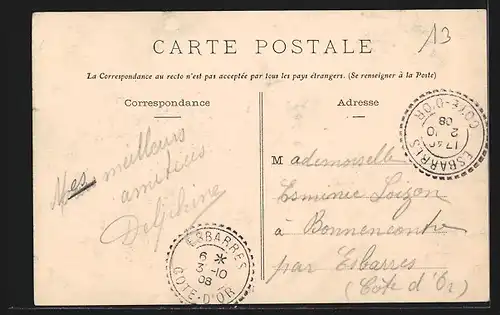 13
CARTE POSTALE
La Correspondance au recto n'est pas acceptée par tous les pays étrangers. (Se renseigner à la Poste)
Correspondance
Adresse
Mes meilleurs
amitiés
Delphine
Mademoiselle
Loizon
à Bonnencontre
par Esbarres
(Côte d'Or)
ESBARRES
17 40
2 10
08
COTE-D'OR
ESBARRES
6 *
3 -10
08
COTE-D'OR